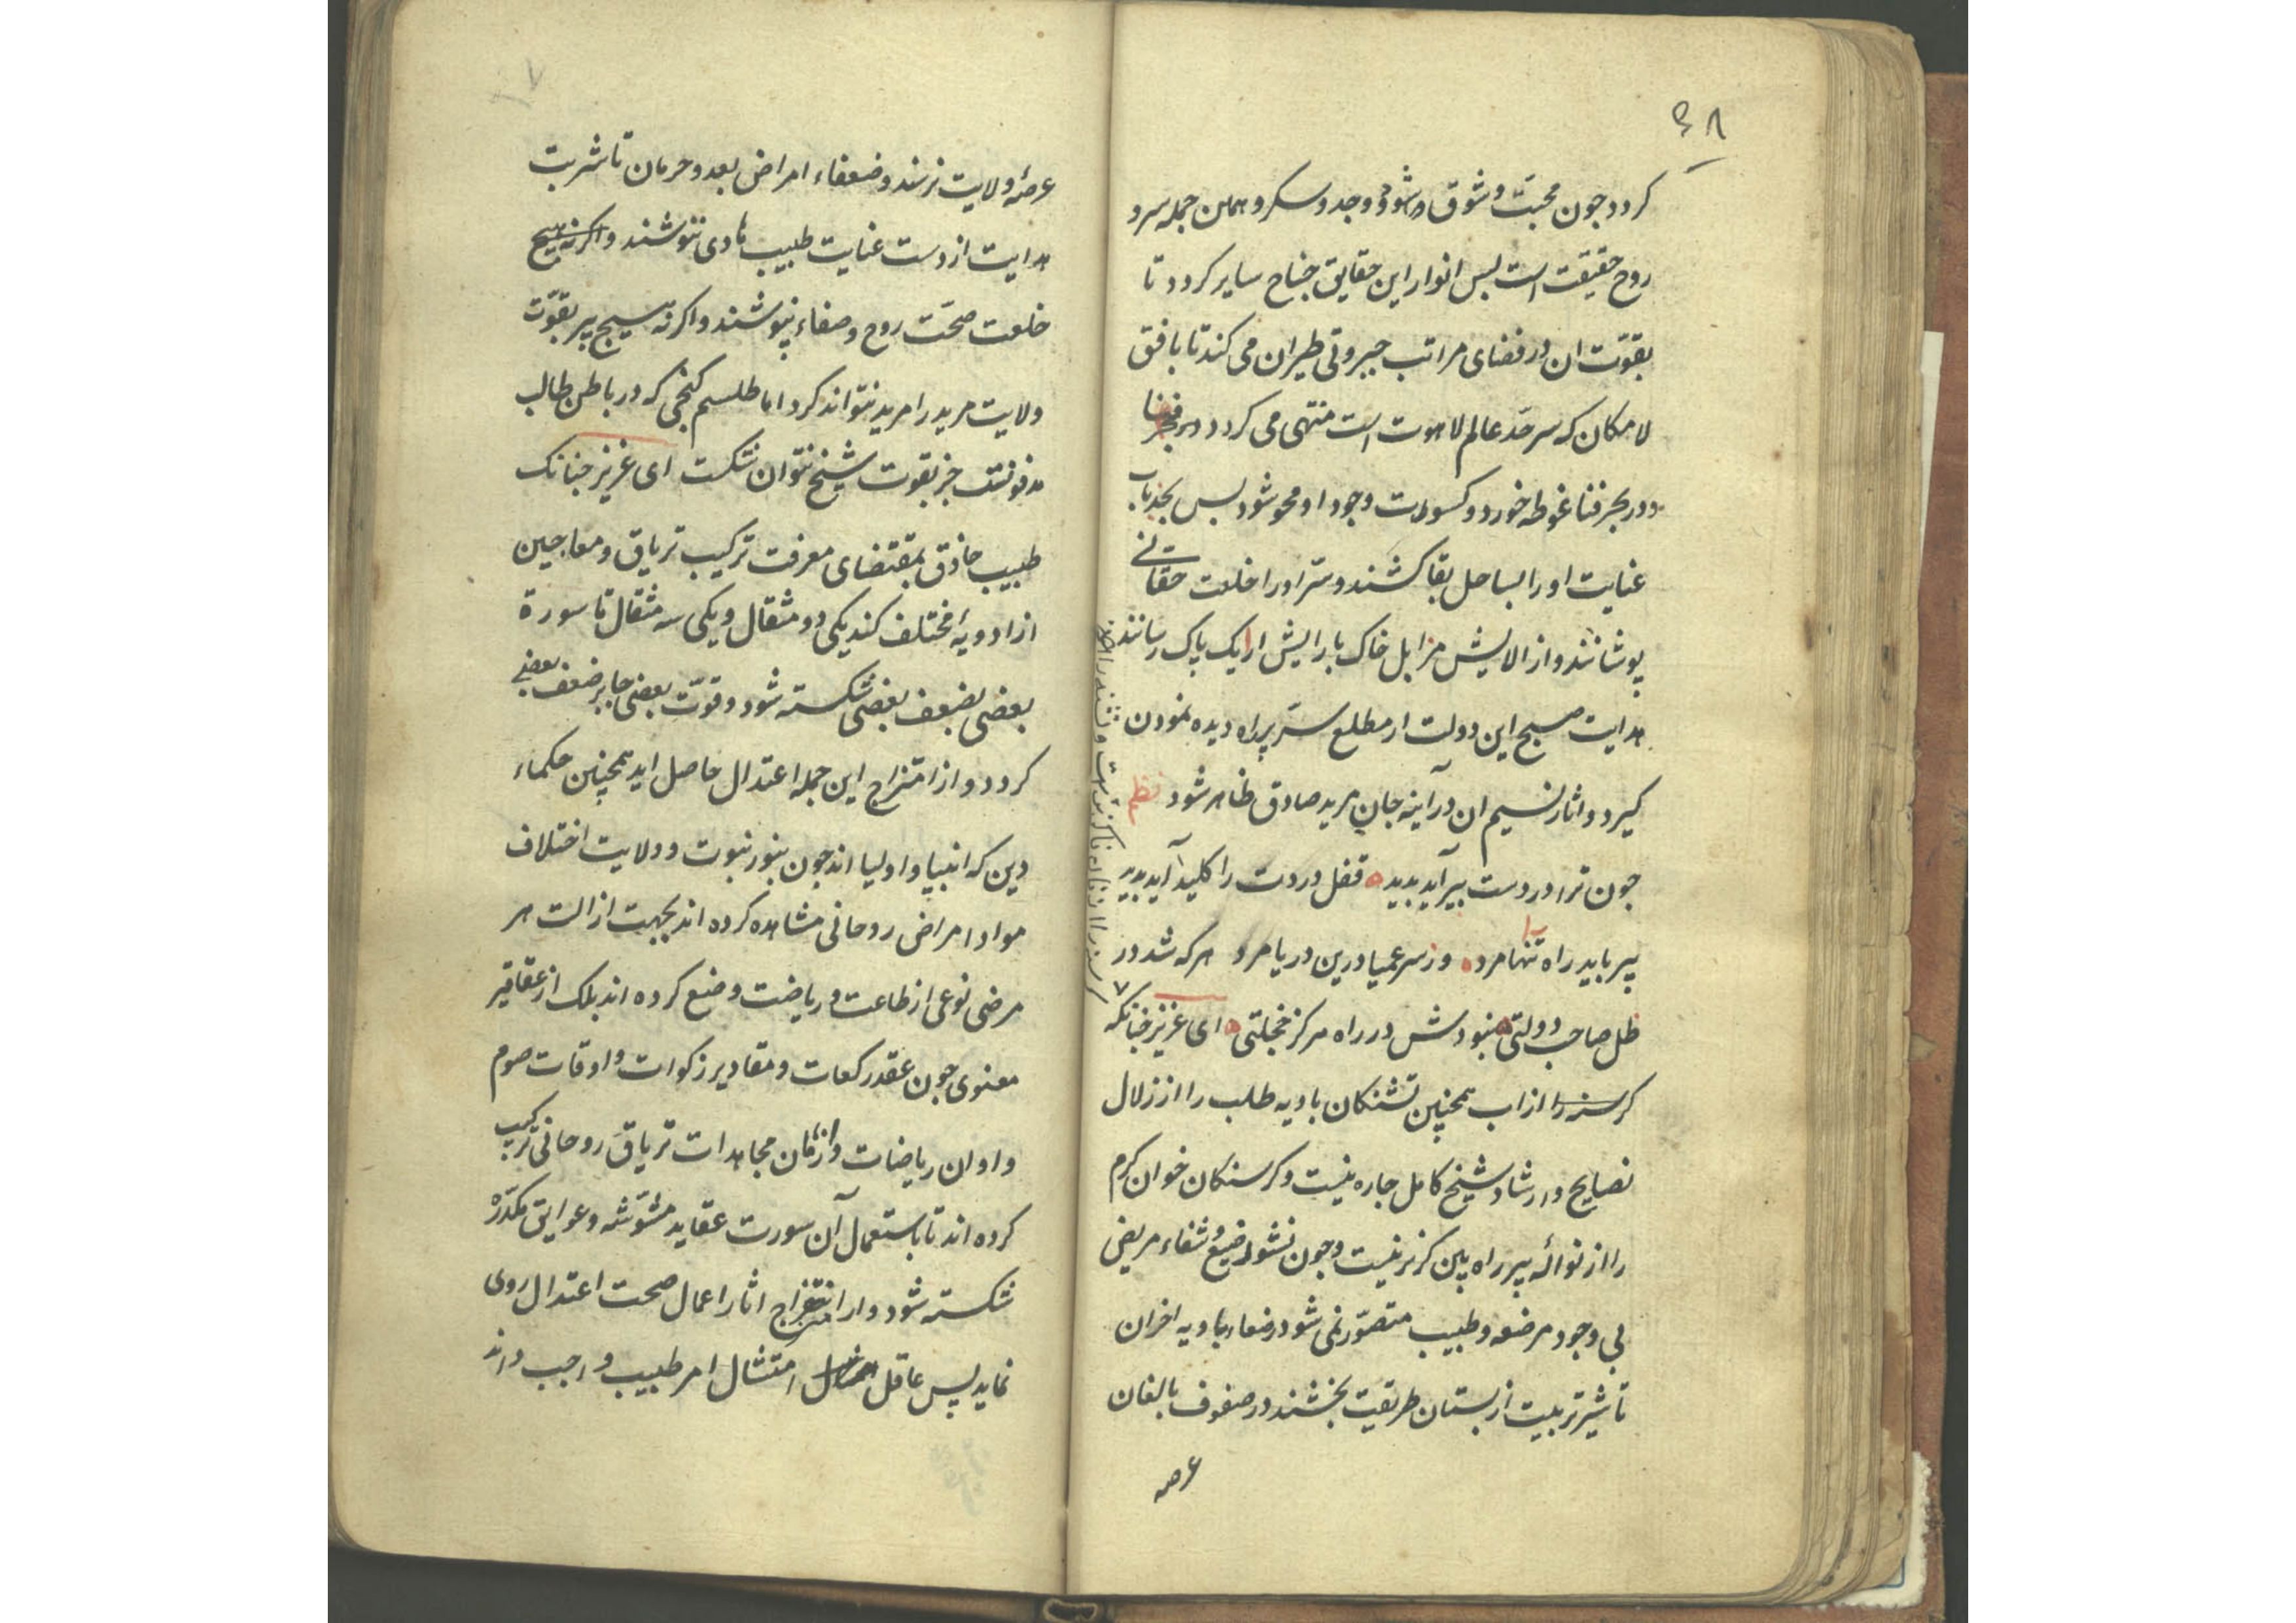 ۶۸
کردد جون محبّت و شوق و شهود و وجد و سکر و همان جمله سر و
روح حقیقت است بس انوار این حقایق جناح سایر کردد تا
بقوّت ان در فضای مراتب جبروتی طیران می کند تا بافق
لامکان که سرحدّ عالم لاهوت است منتهی می کردد در
و در بحر فنا غوطه خورد و کسوت وجود او محو شود بس بجذبات
عنایت او را بساحل بقا کشند و سرّ او را خلعت حقانی
پوشانند و از الایش مزابل خاک بارایش ارایک پاک رسانند
هدایت صبح این دولت از مطلع سرّ پیر راه دیده نمودن
کیرد و اثار نسیم ان در آینه جان مرید صادق ظاهر شود نظم
جون ترا در دست پیر آید بدید قفل دردت را کلید آید بدید
پیر باید راه را تنها مرو وز سر عمیا درین دریا مرو هر که شد در
ظل صاحب دولتی نبودش در راه هرکز خجلتی ای عزیز جنانکه
کرسنه را از اب همچنین تشنکان بادیه طلب را از زلال
نصایح و ارشاد شیخ کامل جاره نیست و کرسنکان خوان کرم
را از نواله پیر راه بین کزیر نیست و جون نشو رضیع و شفاء مریض
بی وجود مرضعه و طبیب متصوّر نمی شود رضعاء بادیه
تا شیر تربیت از بستان طریقیت بخشند در صفوف بالغان
عرصه
عرصهٔ ولایت نرسند و ضعفاء امراض بعد و حرمان تا شربت
هدایت از دست عنایت طبیب هادی ننوشند و اکر نه هیچ
خلعت صحّت روح و صفاء نپوشند و اکر نه هیچ پیر بقوّت
ولایت مرید را مرید نتواند کرد اما طلسم کنجی که در باطن طالب
مدفونست جز بقوت شیخ نتوان شکست ای عزیز جنانک
طبیب حاذق بمقتضای معرفت ترکیب تریاق و معاجین
از ادویهٔ مختلف کند یکی دو مثقال و یکی سه مثقال تا سورة
بعضی بضعف بعضی شکسته شود و قوّت بعضی جابر ضعف بعضی
کردد و از امتزاج این جمله اعتدال حاصل اید همچنین حکماء
دین که انبیا و اولیا اند جون بنور نبوت و ولایت اختلاف
مواد امراض روحانی مشاهده کرده اند بجهت ازالت هر
مرضی نوعی از طاعت و ریاضت وضع کرده اند بلک از عقاقیر
معنوی جون عقد رکعات و مقادیر زکوات و اوقات صوم
و اوان ریاضات و ازمان مجاهدات تریاق روحانی ترکیب
کرده اند تا باستعمال آن سورت عقاید مشوّشه و عوایق مکدّره
شکسته شود و از امتزاج اثار اعمال صحت اعتدال روی
نماید پس عاقل امتثال امر طبیب واجب داند